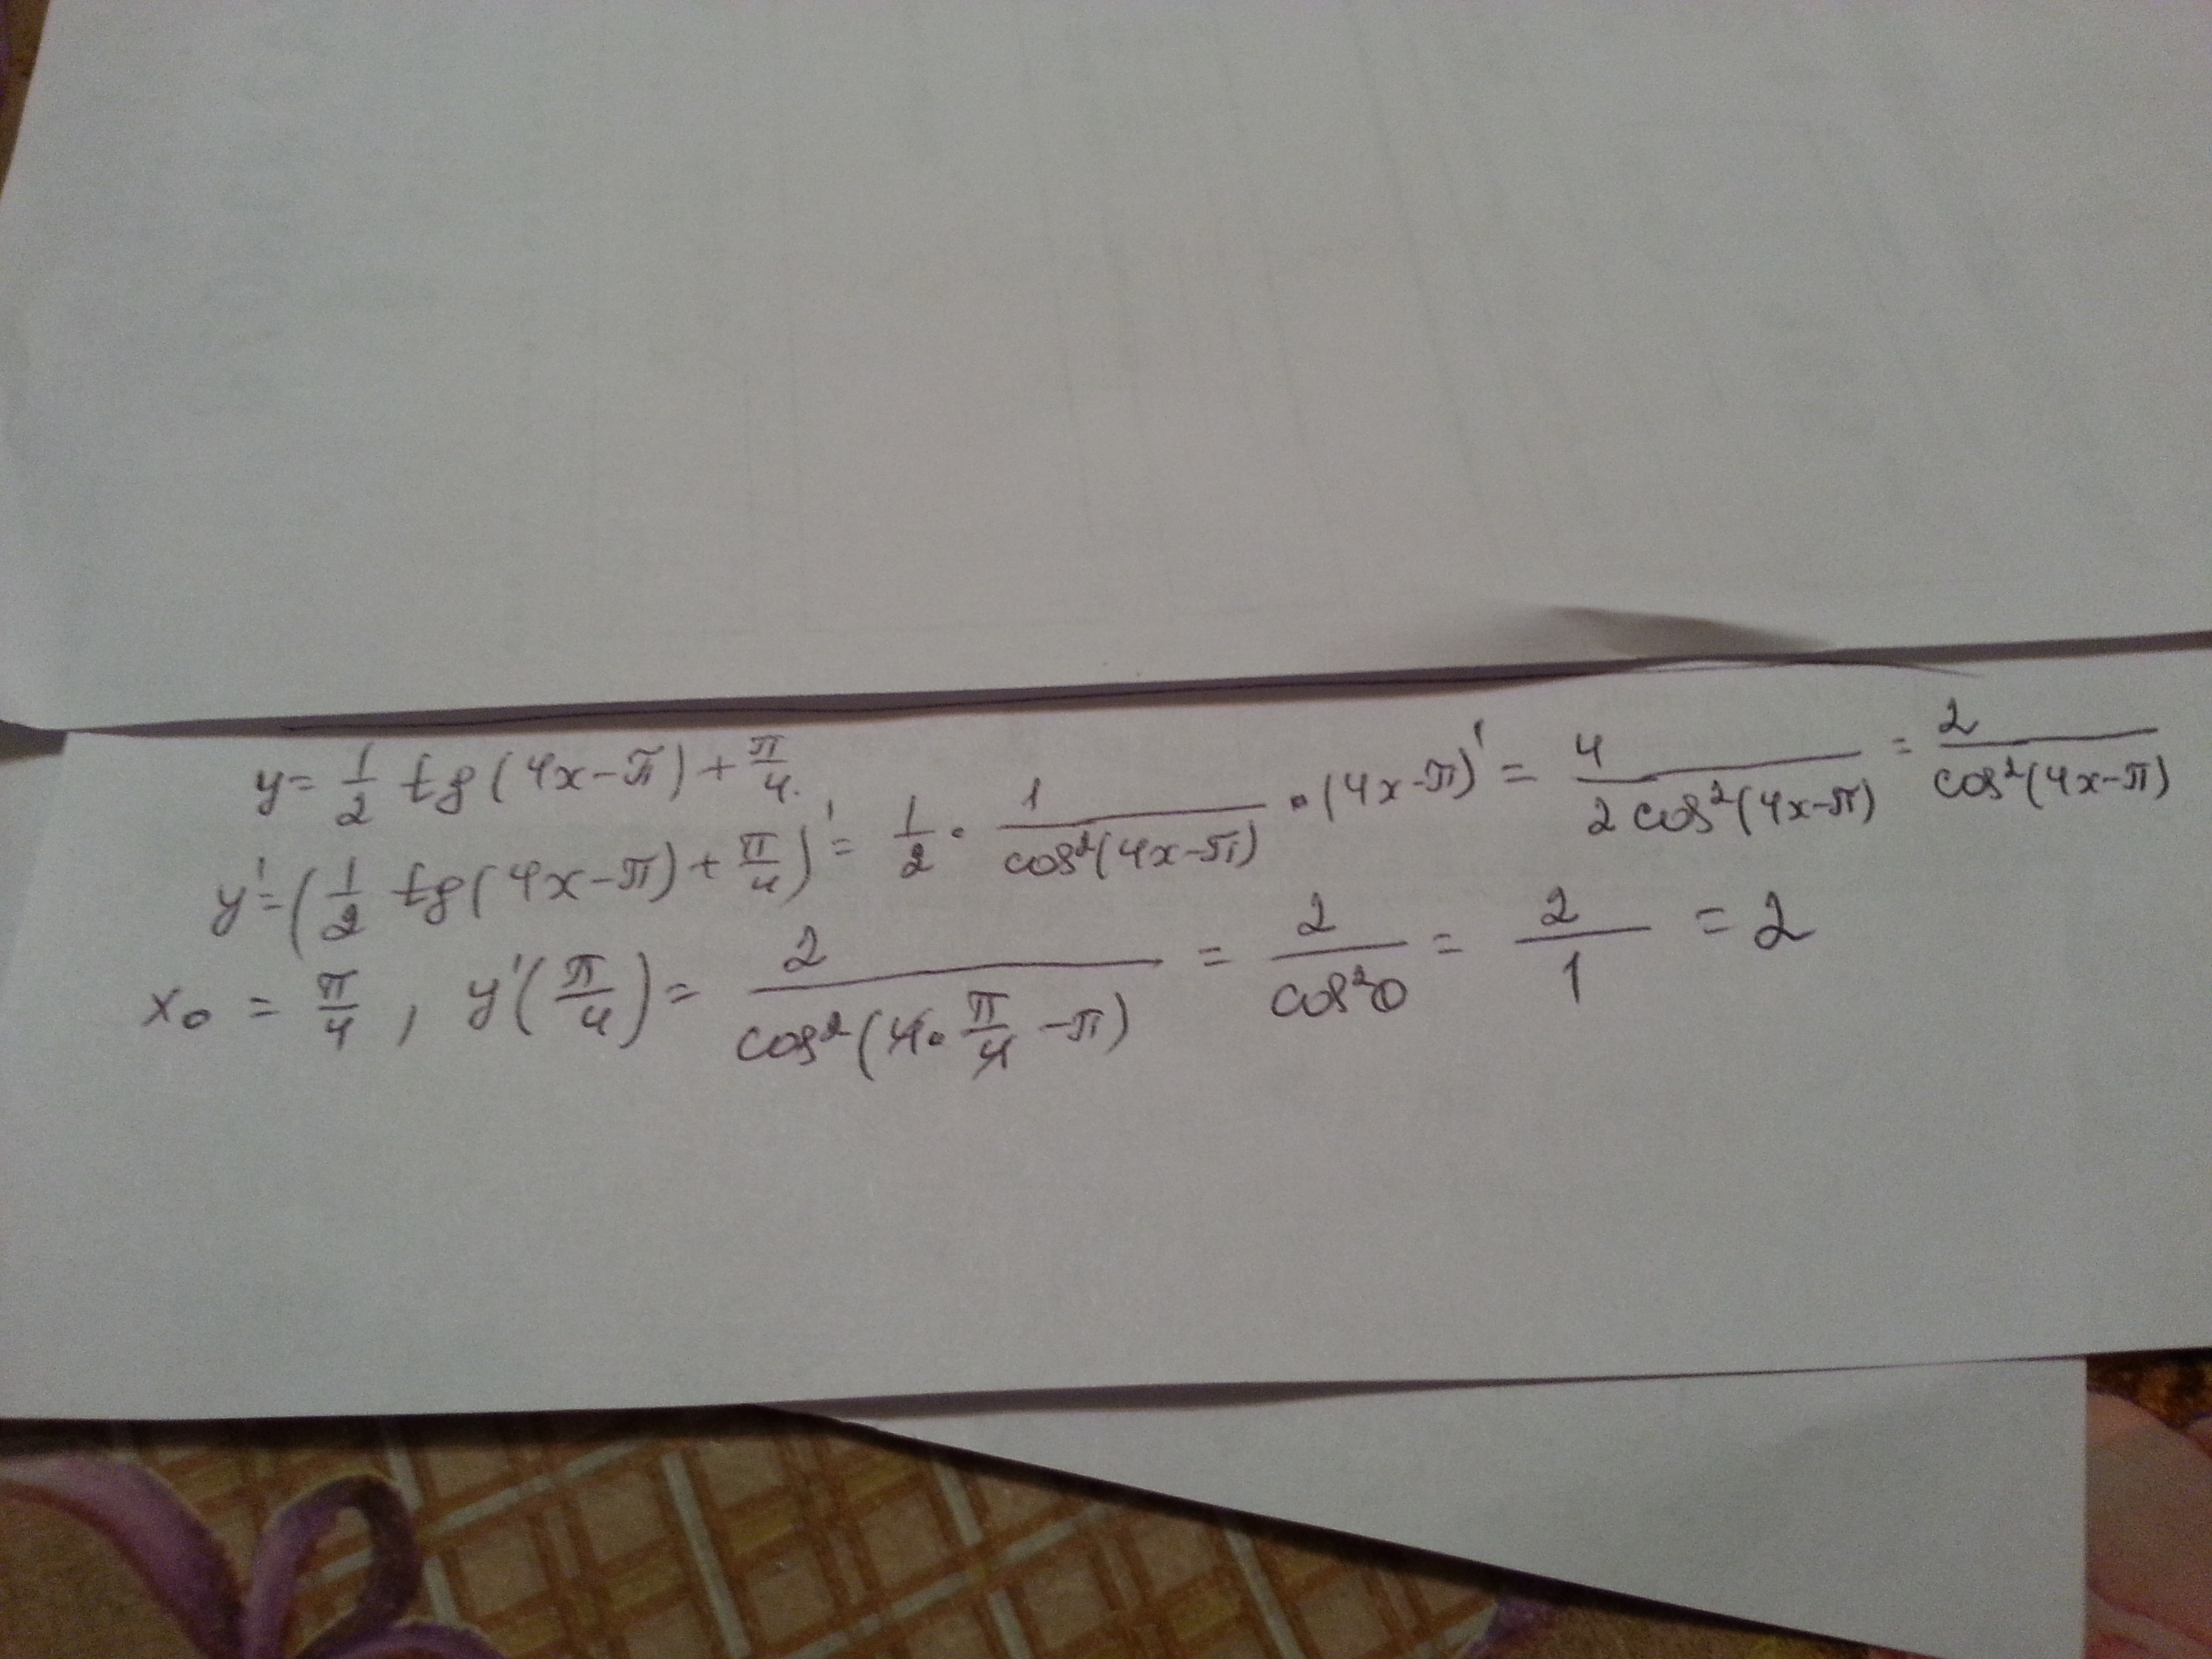 y = 1/2 tg(4x-π) + π/4.
y' = (1/2 tg(4x-π) + π/4)' = 1/2 · 1/cos²(4x-π) · (4x-π)' = 4/2cos²(4x-π) = 2/cos²(4x-π)
x₀ = π/4, y'(π/4) = 2/cos²(4·π/4 -π) = 2/cos²0 = 2/1 = 2